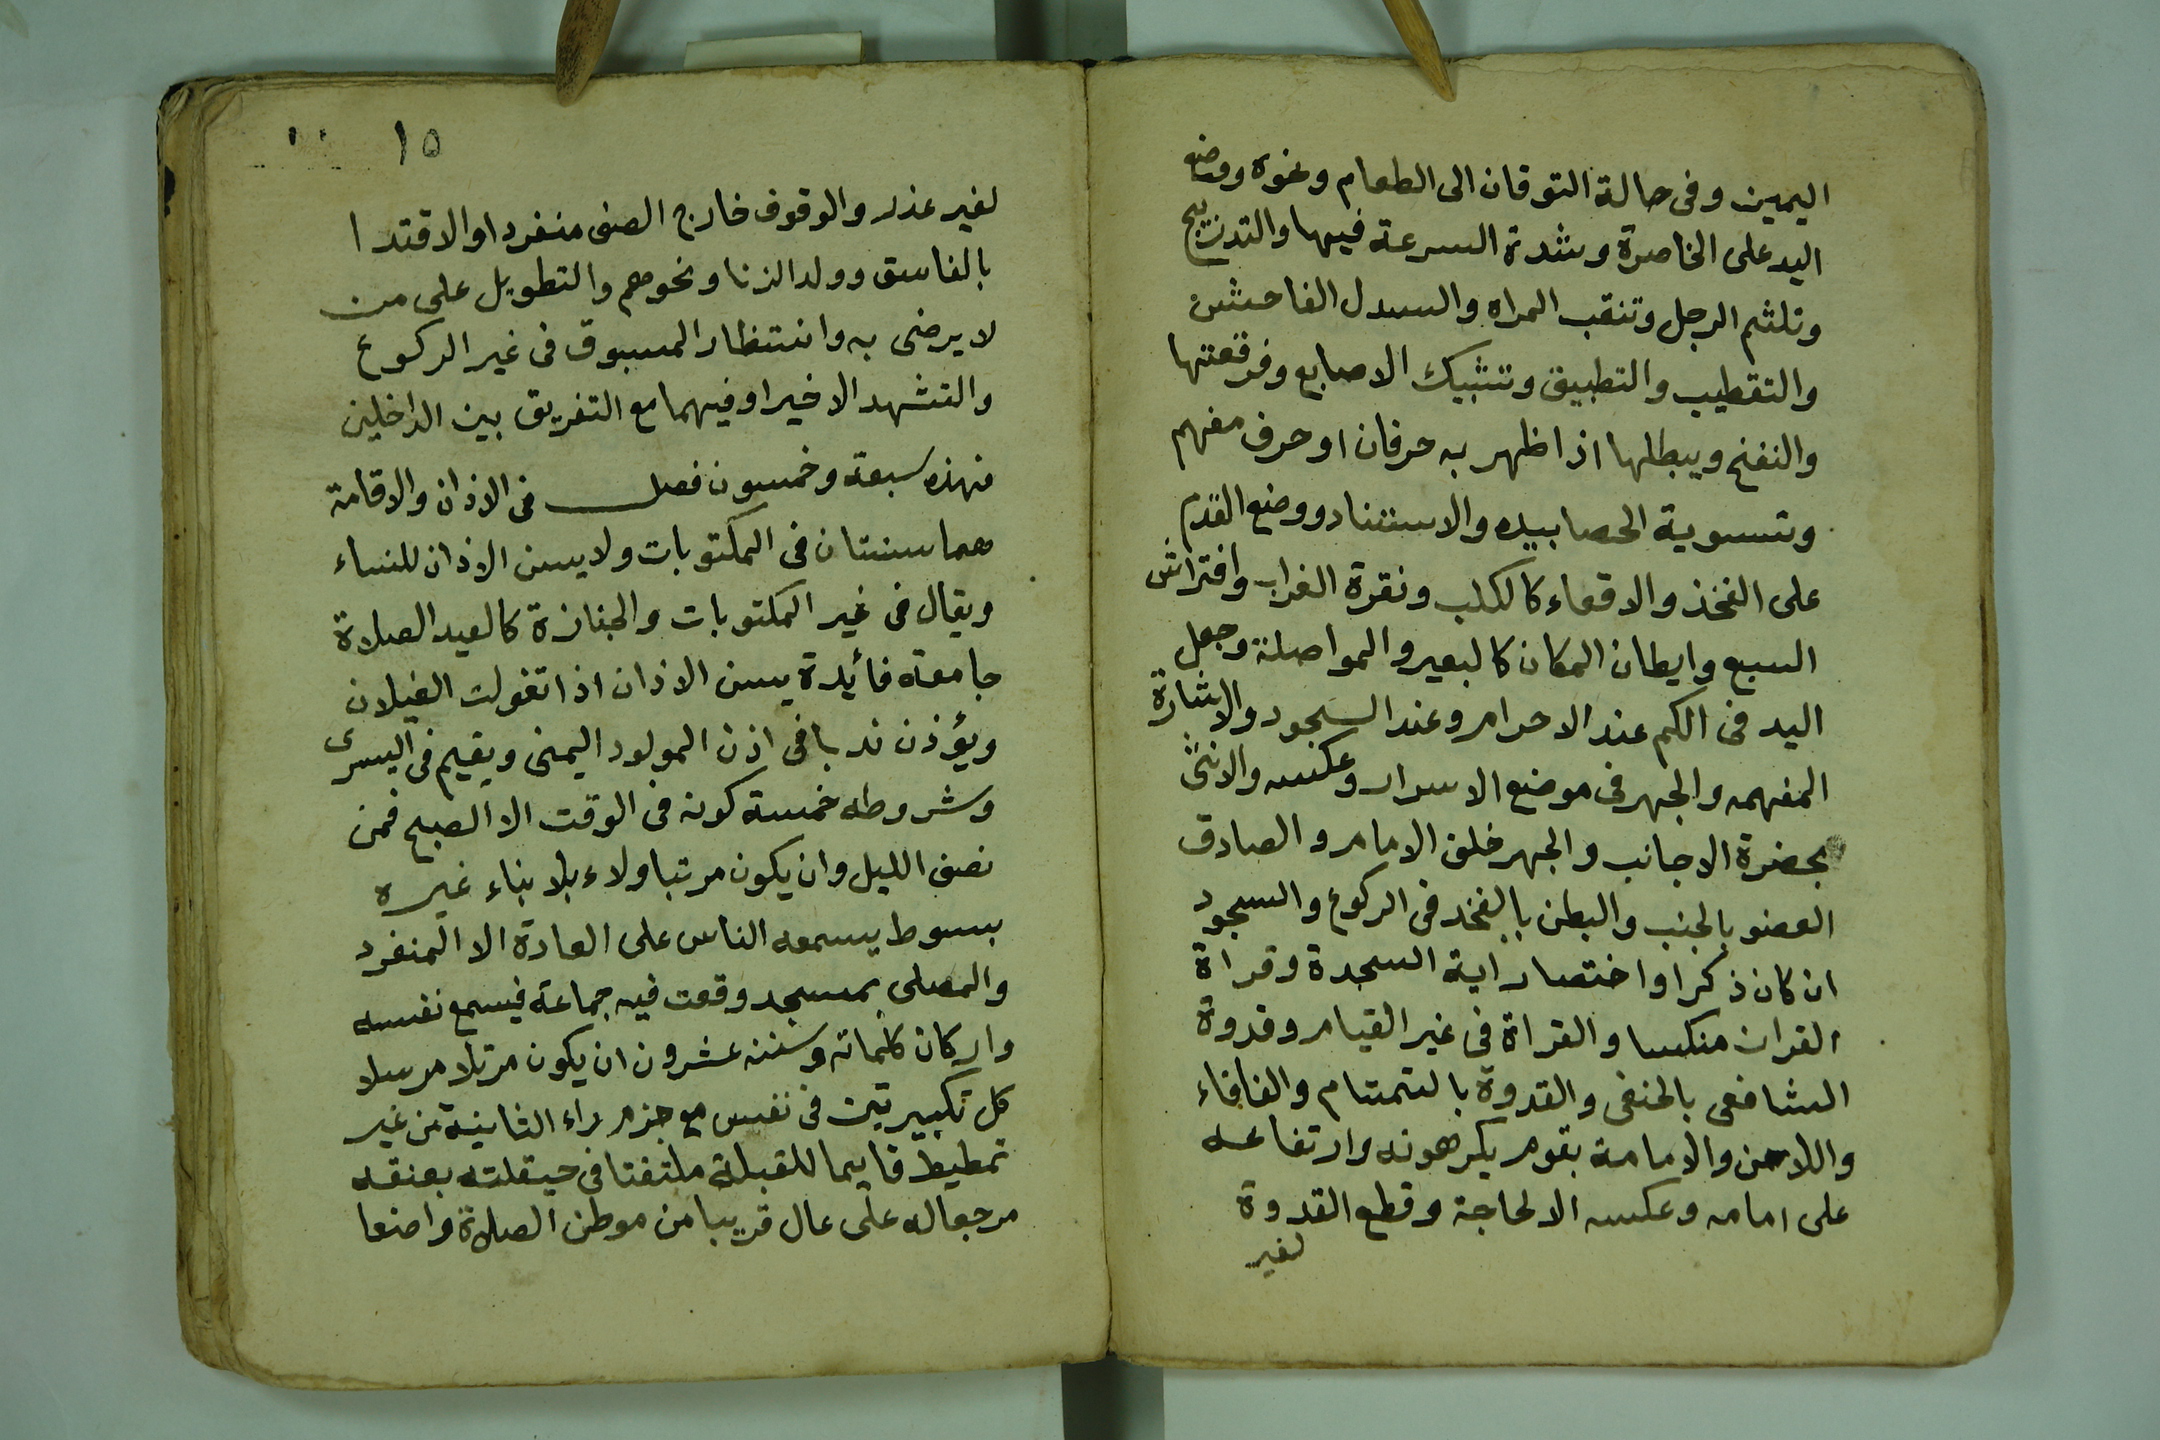 اليمين وفى حالة التوقان الى الطعام ونحوه ووضع
اليد على الخاصرة وشدة السرعة فيها والتدبيح
وتلثم الرجل وتنقب المراه والسدل الفاحش
والتقطيب والتطبيق وتشبيك الاصابع وفرقعتها
والنفخ ويبطلها اذا ظهر به حرفان او حرف مفهم
وتسوية الحصا بيده والاستناد ووضع القدم
على الفخذ والاقعاء كالكلب ونقرة الغراب وافتراش
السبع وايطان المكان كالبعير والمواصلة وجعل
اليد فى الكم عند الاحرام وعند السجود والاشارة
المفهمه والجهر فى موضع الاسرار وعكسه والانثى
بحضرة الاجانب والجهر خلف الامام والصادق
العضو بالجنب والبطن بالفخذ فى الركوع والسجود
ان كان ذكرا واختصار اية السجدة وقراة
القران منكسا والقراة فى غير القيام وقدوة
الشافعى بالحنفى والقدوة بالتمتام والفافاء
واللاحن والامامة بقوم يكرهونه وارتفاعه
على امامه وعكسه الا لحاجة وقطع القدوة
لغير
١٥
لغير عذر والوقوف خارج الصف منفردا والاقتدا
بالفاسق وولد الزنا ونحوهم والتطويل على من
لا يرضى به وانتظار المسبوق فى غير الركوع
والتشهد الاخير او فيهما مع التفريق بين الداخلين
فهذه سبعة وخمسون فصل فى الاذان والاقامة
هما سنتان فى المكتوبات ولا يسن الاذان للنساء
ويقال فى غير المكتوبات والجنازة كالعيد الصلاة
جامعة فائدة يسن الاذان اذا تغولت الغيلان
ويؤذن ندبا فى اذن المولود اليمنى ويقيم فى اليسرى
وشروطه خمسة كونه فى الوقت الا الصبح فمن
نصف الليل وان يكون مرتبا ولاء بلا بناء غيره
بسوط يسمعه الناس على العادة الا المنفرد
والمصلى بمسجد وقعت فيه جماعة فيسمع نفسه
واركان كلماته وسننه عشرون ان يكون مرتلا مرسلا
كل تكبيرتين فى نفس مع جزم راء الثانية من غير
تمطيط قايما للقبلة ملتفتا فى حيقلته بعنقه
مرجعا له على عال قريبا من موطن الصلاة واضعا